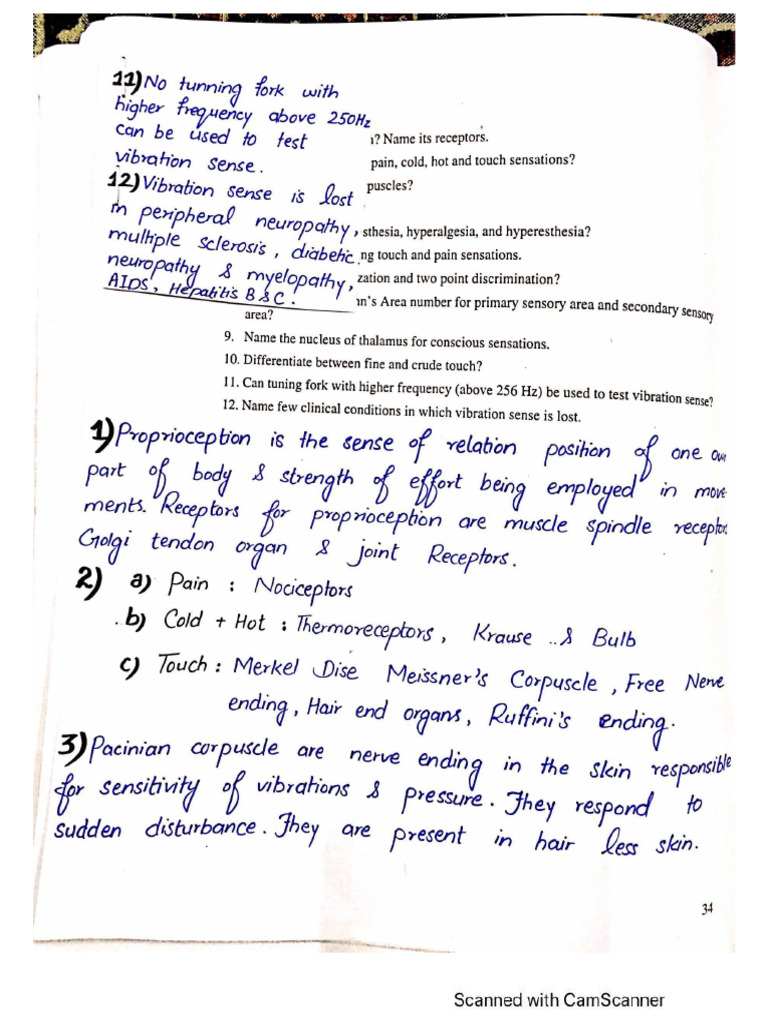 11) No tunning fork with
higher frequency above 250Hz
can be used to test
vibration sense.
12) Vibration sense is lost
in peripheral neuropathy,
multiple sclerosis, diabetic
neuropathy & myelopathy,
AIDS, Hepatitis B & C.
? Name its receptors.
pain, cold, hot and touch sensations?
puscles?
sthesia, hyperalgesia, and hyperesthesia?
ng touch and pain sensations.
zation and two point discrimination?
n's Area number for primary sensory area and secondary sensory
area?
9. Name the nucleus of thalamus for conscious sensations.
10. Differentiate between fine and crude touch?
11. Can tuning fork with higher frequency (above 256 Hz) be used to test vibration sense?
12. Name few clinical conditions in which vibration sense is lost.
1) Proprioception is the sense of relation position of one own
part of body & strength of effort being employed in move-
ments. Receptors for proprioception are muscle spindle receptor,
Golgi tendon organ & joint Receptors.
2) a) Pain : Nociceptors
b) Cold + Hot : Thermoreceptors, Krause .. & Bulb
c) Touch : Merkel Disc Meissner's Corpuscle, Free Nerve
ending, Hair end organs, Ruffini's ending.
3) Pacinian corpuscle are nerve ending in the skin responsible
for sensitivity of vibrations & pressure. They respond to
sudden disturbance. They are present in hair less skin.
34
Scanned with CamScanner